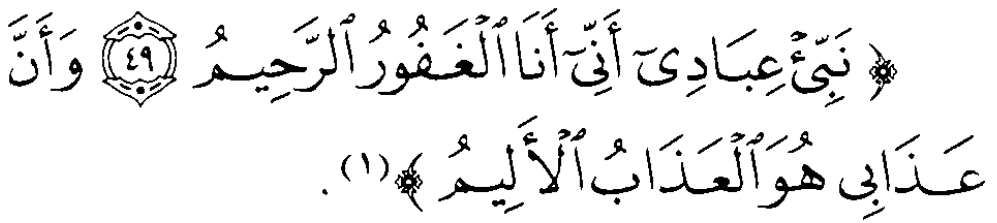 ﴿ نَبِّئْ عِبَادِىٓ أَنِّىٓ أَنَا ٱلْغَفُورُ ٱلرَّحِيمُ ٤٩ وَأَنَّ
عَذَابِى هُوَ ٱلْعَذَابُ ٱلْأَلِيمُ ﴾(١) .